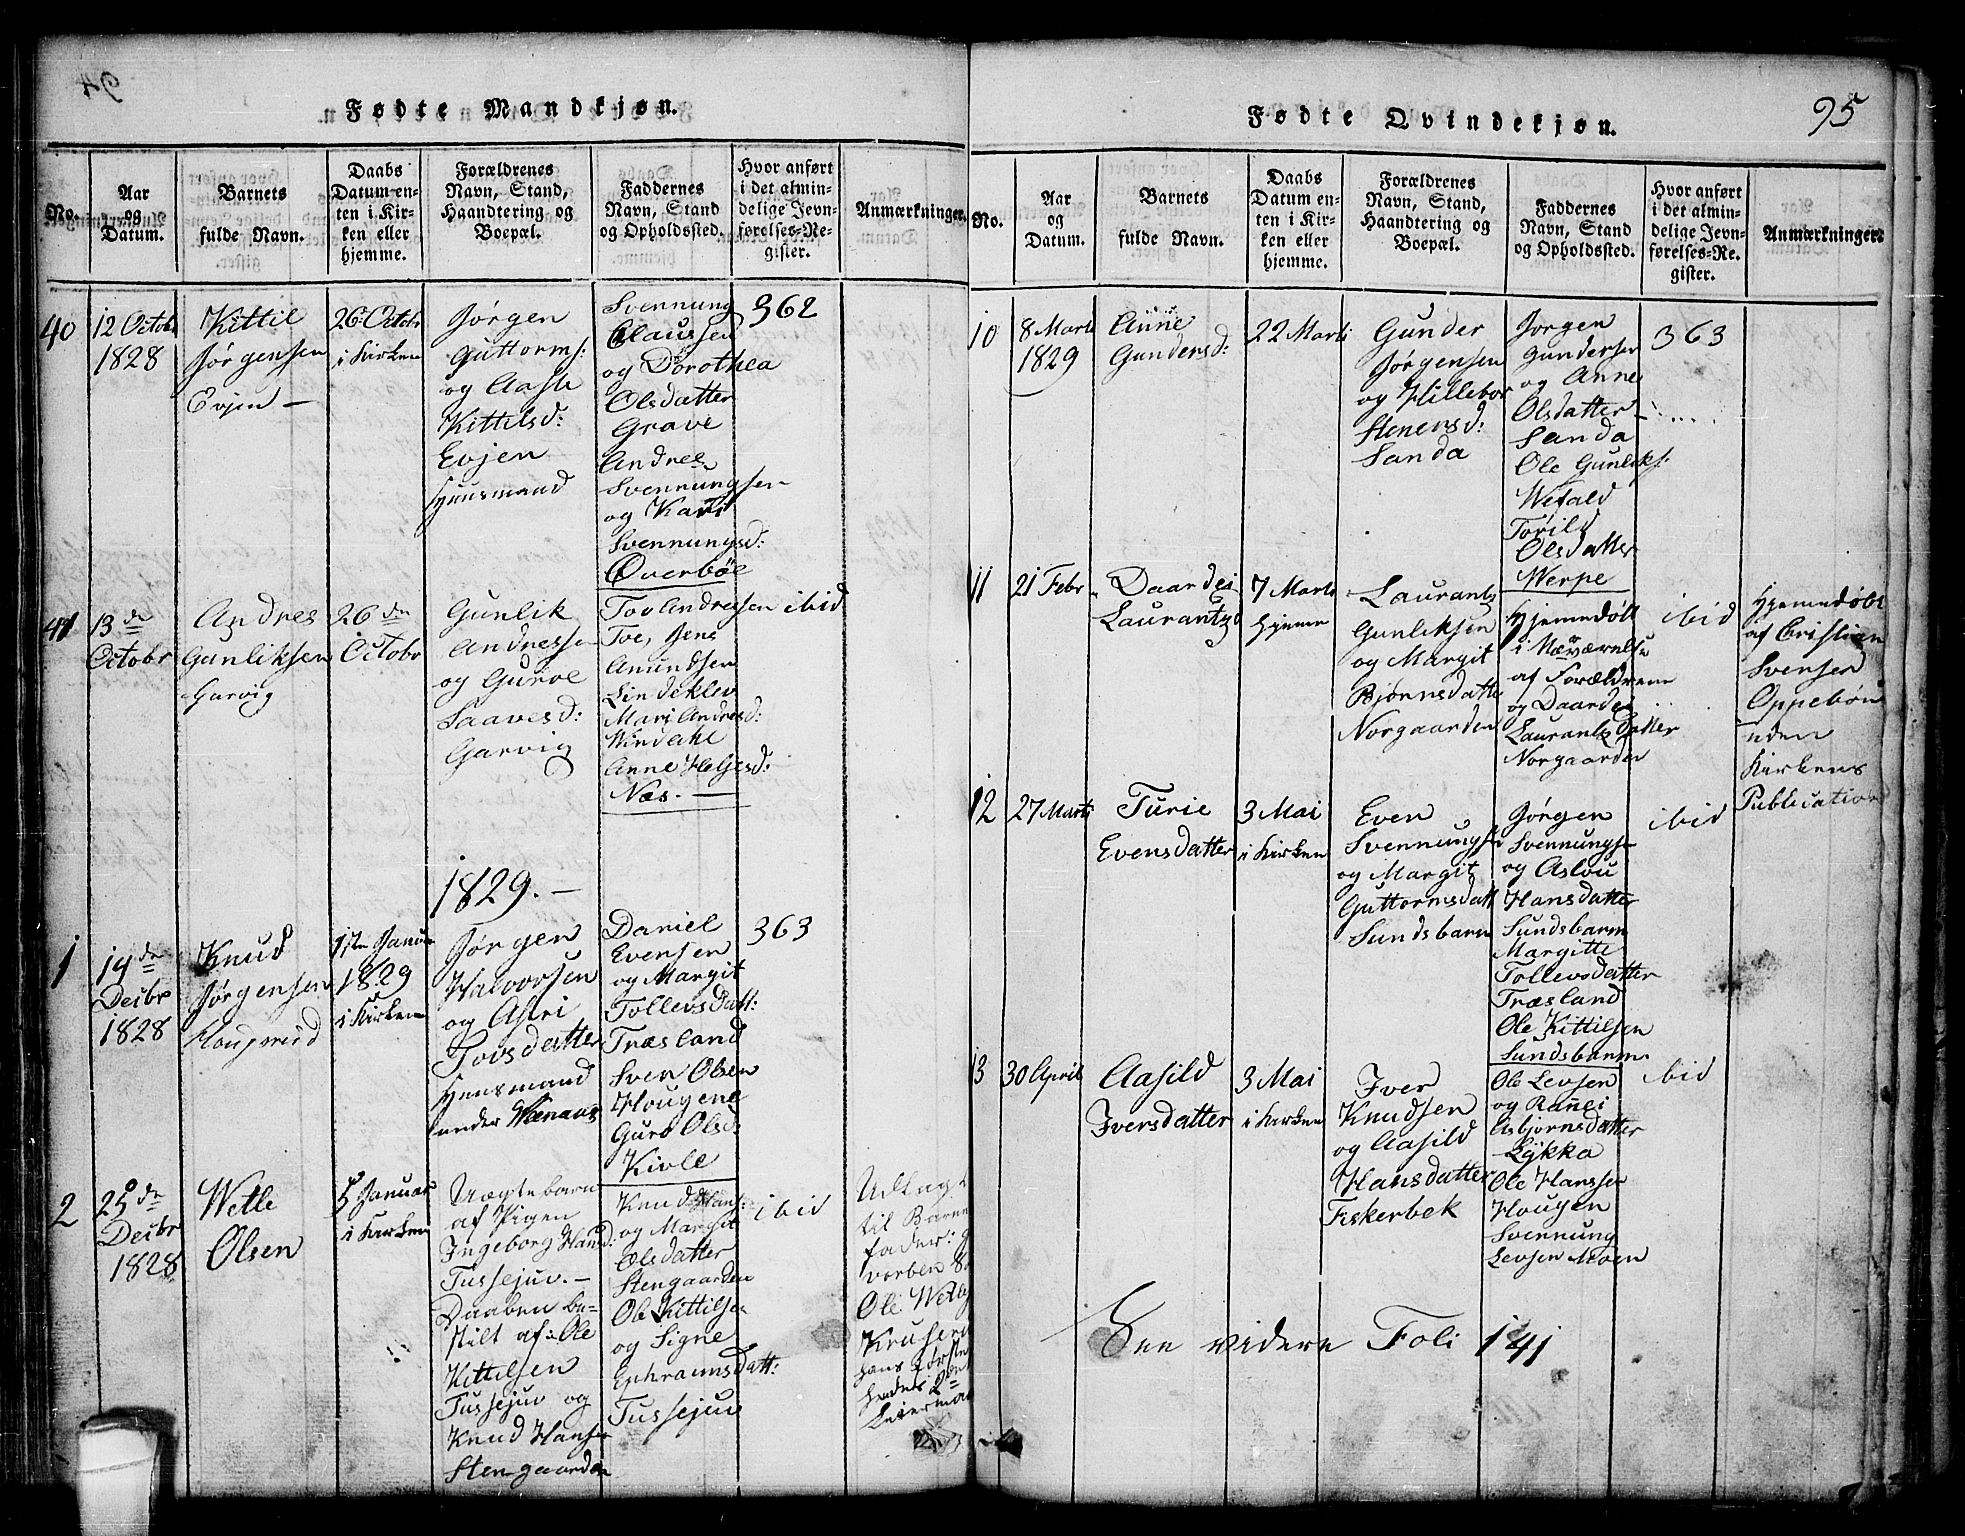 94
Fødte Mandkjøn.
No.
Aar
og
Datum.
Barnets
fulde Navn.
Daabs
Datum en-
ten i Kir-
ken eller
hjemme.
Forældrenes
Navn, Stand,
Haandtering og
Boepæl.
Faddernes
Navn, Stand
og Opholdssted.
Hvor anført
i det almin-
delige Jevn-
førelses-Re-
gister.
Anmærkninger.
40
12 Octobr
1828
Kittil
Jørgensen
Evjen -
26 Octobr
i Kirken
Jørgen
Guttorms:
og Aaste
Kittilsd:
Evjen
Huusmand
Svennung
Claussen
og Dorothea
Olsdatter
Grave
Andres
Svennungsen
og Kari
Svennungsd:
Overbøe
362
41
13de
Octobr
Andres
Gunliksen
Garvig
26de
Octobr
Gunlik
Andressen
og Guroe
Saavesd:
Garvig
Tov Andressen
Tve, Jens
Amundsen
Lindeklev
Mari Andresd:
Windahl
Anne Heljesd:
Næs. -
ibid
1829. -
1
19de
Decbr
1828
Knud
Jørgensen
1ste Januar
1829
i Kirken
Jørgen
Halvorsen
og Astri
Tovsdatter
Huusmand
under
Daniel
Evensen
og Margit
Tollevsdatt:
Træsland
Sven Olsen
Hougene
Guro Olsd:
Kivle
363
2
25de
Decbr
1828
Wetle
Olsen
5 Januar
i Kirken
Uægtebarn
af Pigen
Ingeborg Hansd:
Tussejuv. -
Daaben be-
stilt af: Ole
Kittilsen
Tussejuv og
Knud Hansen
Stengaarden
Knud Hans:
og Margit
Olsdatter
Stengaarden
Ole Kittilsen
og Signe
Ephraimsdatt:
Tussejuv
ibid
Udlagt
til Barne
fader:
Ole
hans første
hendes 2
Leiermaal
95
Fødte Qvindekjøn.
No.
Aar
og
Datum.
Barnets
fulde Navn.
Daabs
Datum en-
ten i Kir-
ken eller
hjemme.
Forældrenes
Navn, Stand,
Haandtering og
Boepæl.
Faddernes
Navn, Stand
og Opholdssted.
Hvor anført
i det almin-
delige Jevn-
førelses-Re-
gister.
Anmærkninger.
10
8 Marti
1829
Anne
Gundersd:
22 Marti
Gunder
Jørgensen
og Hillebor
Stenersd:
Sanda
Jørgen
Gundersen
og Anne
Olsdatter
Sanda
Ole Gunliks:
Wefald
Torild
Olsdatter
Werpe
363
11
21 Febr
Daardei
Laurantzd
7 Marti
hjemme
Laurantz
Gunliksen
og Margit
Bjørnsdatter
Norgaarden
Hjemmedøbt
i Nærværelse
af Forældrene
og Daardei
Laurantzdatter
Norgaarden
ibid
Hjemmedøbt
af Cristian
Svensen
Oppebøn
uden
Kirkens
Publication
12
27 Marti
Turie
Evensdatter
3 Mai
i Kirken
Even
Svennungs
og Margit
Guttormsdatt
Sundsbarm
Jørgen
Svennungsen
og Aslou
Hansdatter
Sundsbarm
Margitte
Tollevsdatter
Træsland
Ole Kittilsen
Sundsbarm
ibid
13
30 April
Aasild
Iversdatter
3 Mai
i Kirken
Iver
Knudsen
og Aasild
Hansdatter
Fiskerbek
Ole Levsen
og Rannei
Asbjørnsdatter
Lykka
Ole Hanssen
Hougen
Svennung
Levsen Moen
ibid
See videre Foli 141